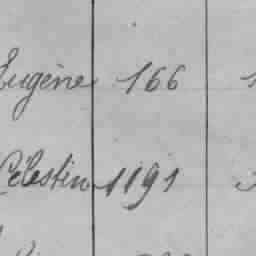 Eugène 166
Célestin 1191